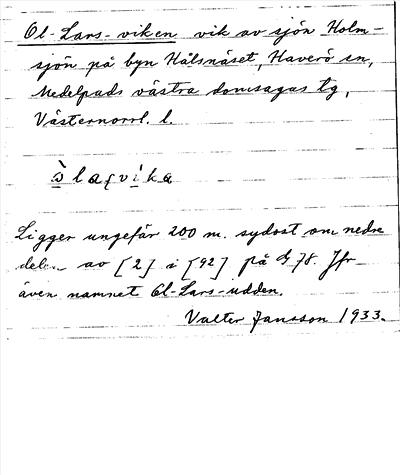 Ol-Lars-viken vik av sjön Holm-
sjön på byn Hålsnäset, Haverö sn,
Medelpads västra domsagas tg,
Västernorrl. l.
Ligger ungefär 200 m. sydost om nedre
delen av [2] i [92] på 78. Jfr
även namnet Ol-Lars-udden.
Valter Jansson 1933.